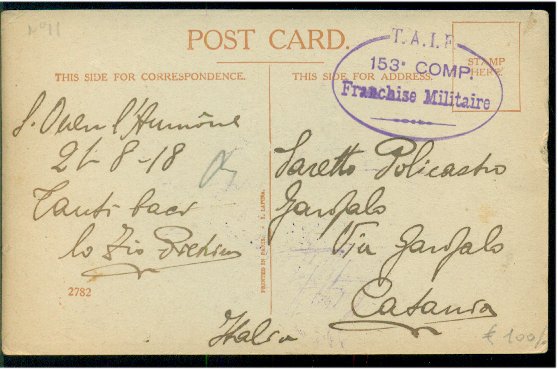 Nº 11
POST CARD.
T.A.I.F.
153ª COMP.
Franchise Militaire
STAMP
HERE.
THIS SIDE FOR CORRESPONDENCE.
THIS SIDE FOR ADDRESS.
S. Ouen l'Aumône
21-8-18
Tanti baci
lo Zio
2782
PRINTED IN PARIS. - E. LAPINA.
Saretto Policastro
Garofalo
Via Garofalo
Catania
Italia
€ 100/